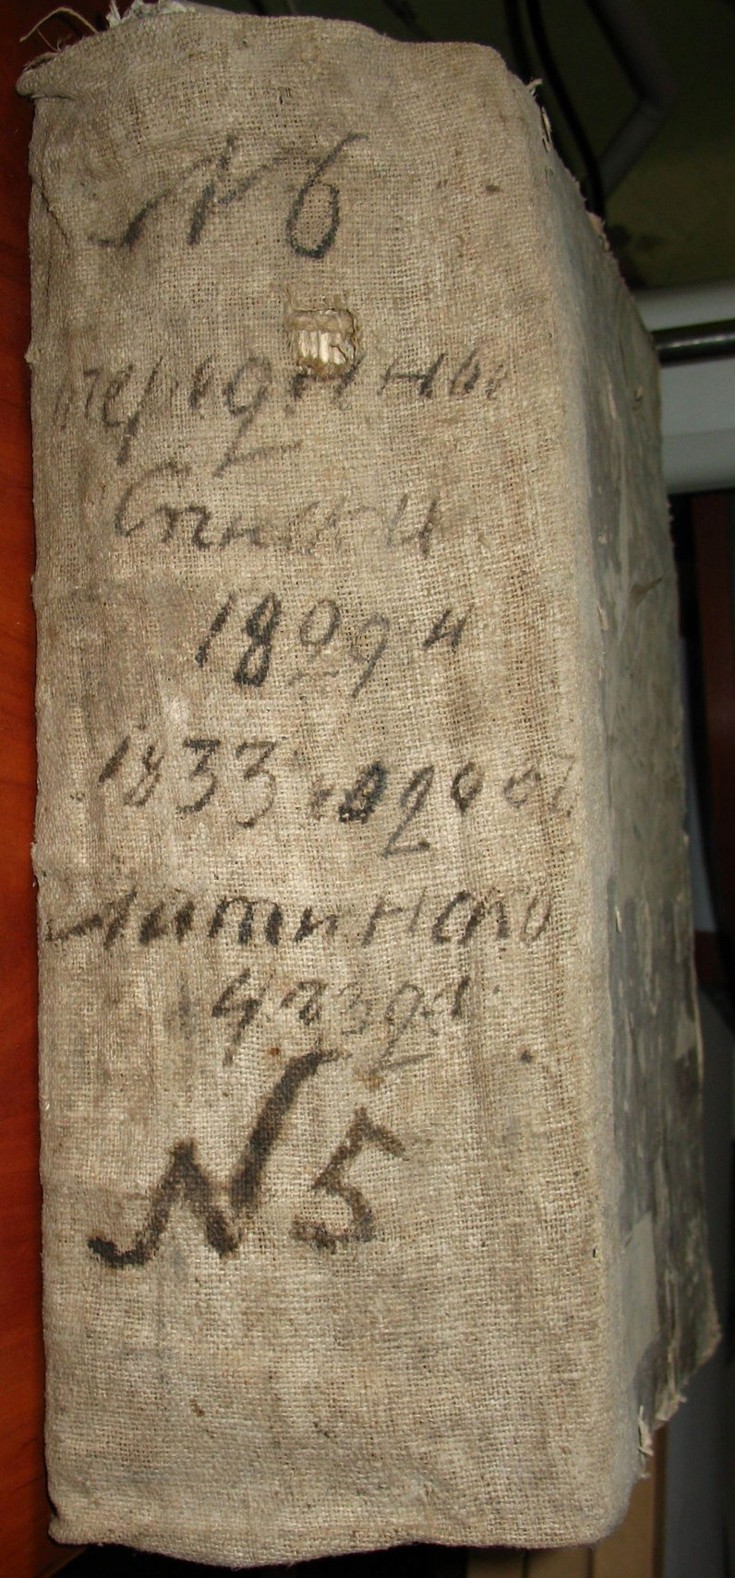 № 6
Очередные
Списки
1829 и
1833 годовъ
Литинско
уѣзда
№ 5